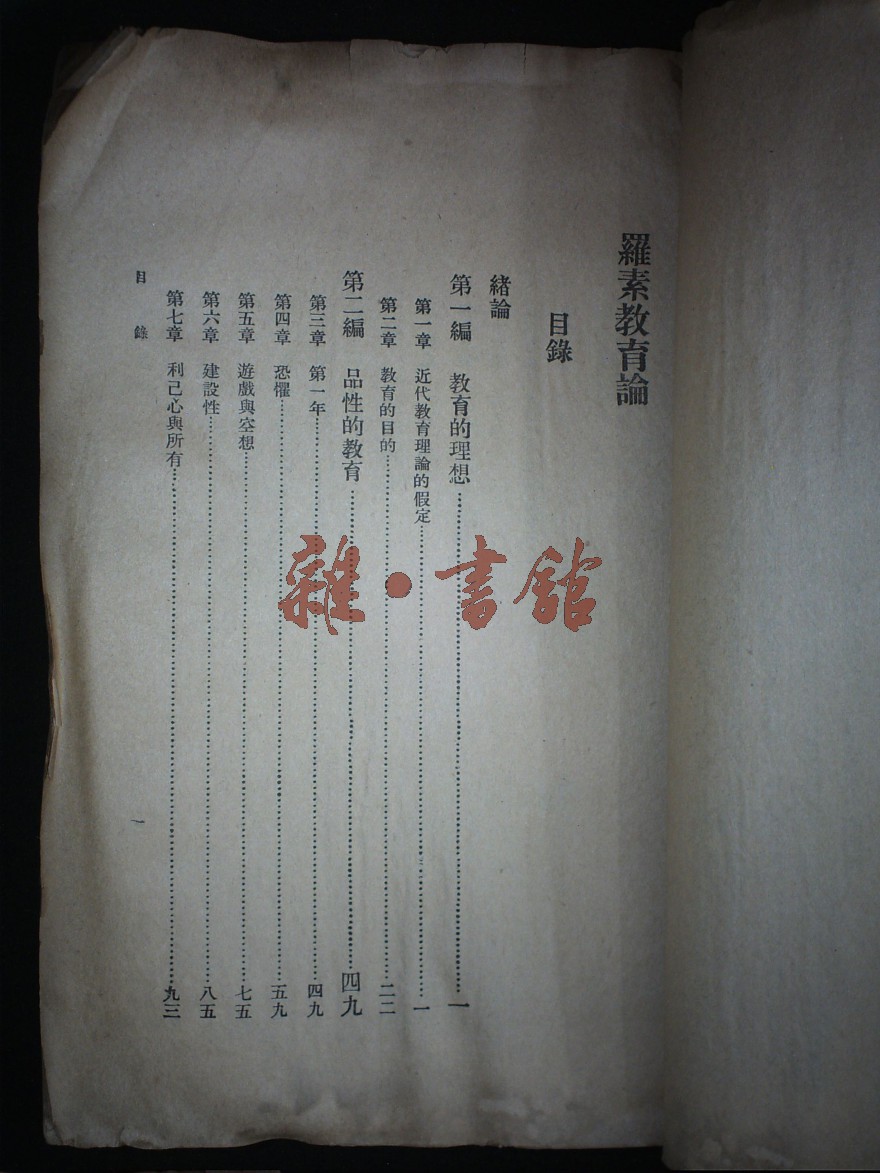 羅素教育論
目錄
緒論
第一編 教育的理想……一
第一章 近代教育理論的假定……一
第二章 教育的目的……二二
第二編 品性的教育……四九
第三章 第一年……四九
第四章 恐懼……五九
第五章 遊戲與空想……七五
第六章 建設性……八五
第七章 利己心與所有……九三
目錄 一
雜·書館